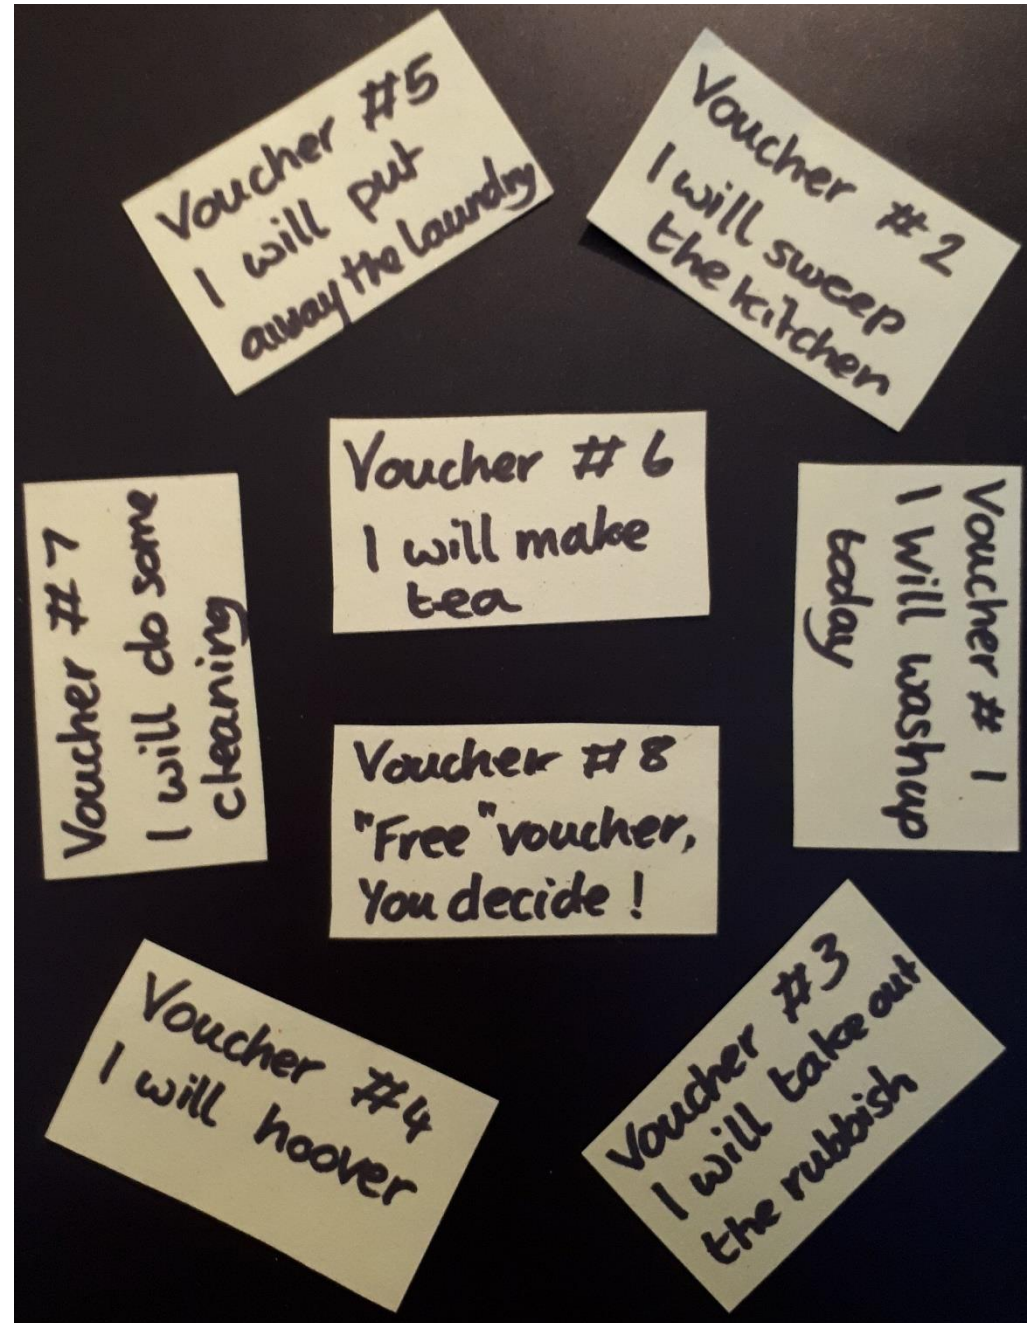 Voucher #5
I will put
away the laundry
Voucher #2
I will sweep
the kitchen
Voucher #6
I will make
tea
Voucher #7
I will do some
cleaning
Voucher # 1
I will washup
today
Voucher #8
"Free" voucher,
You decide !
Voucher #4
I will hoover
Voucher #3
I will take out
the rubbish